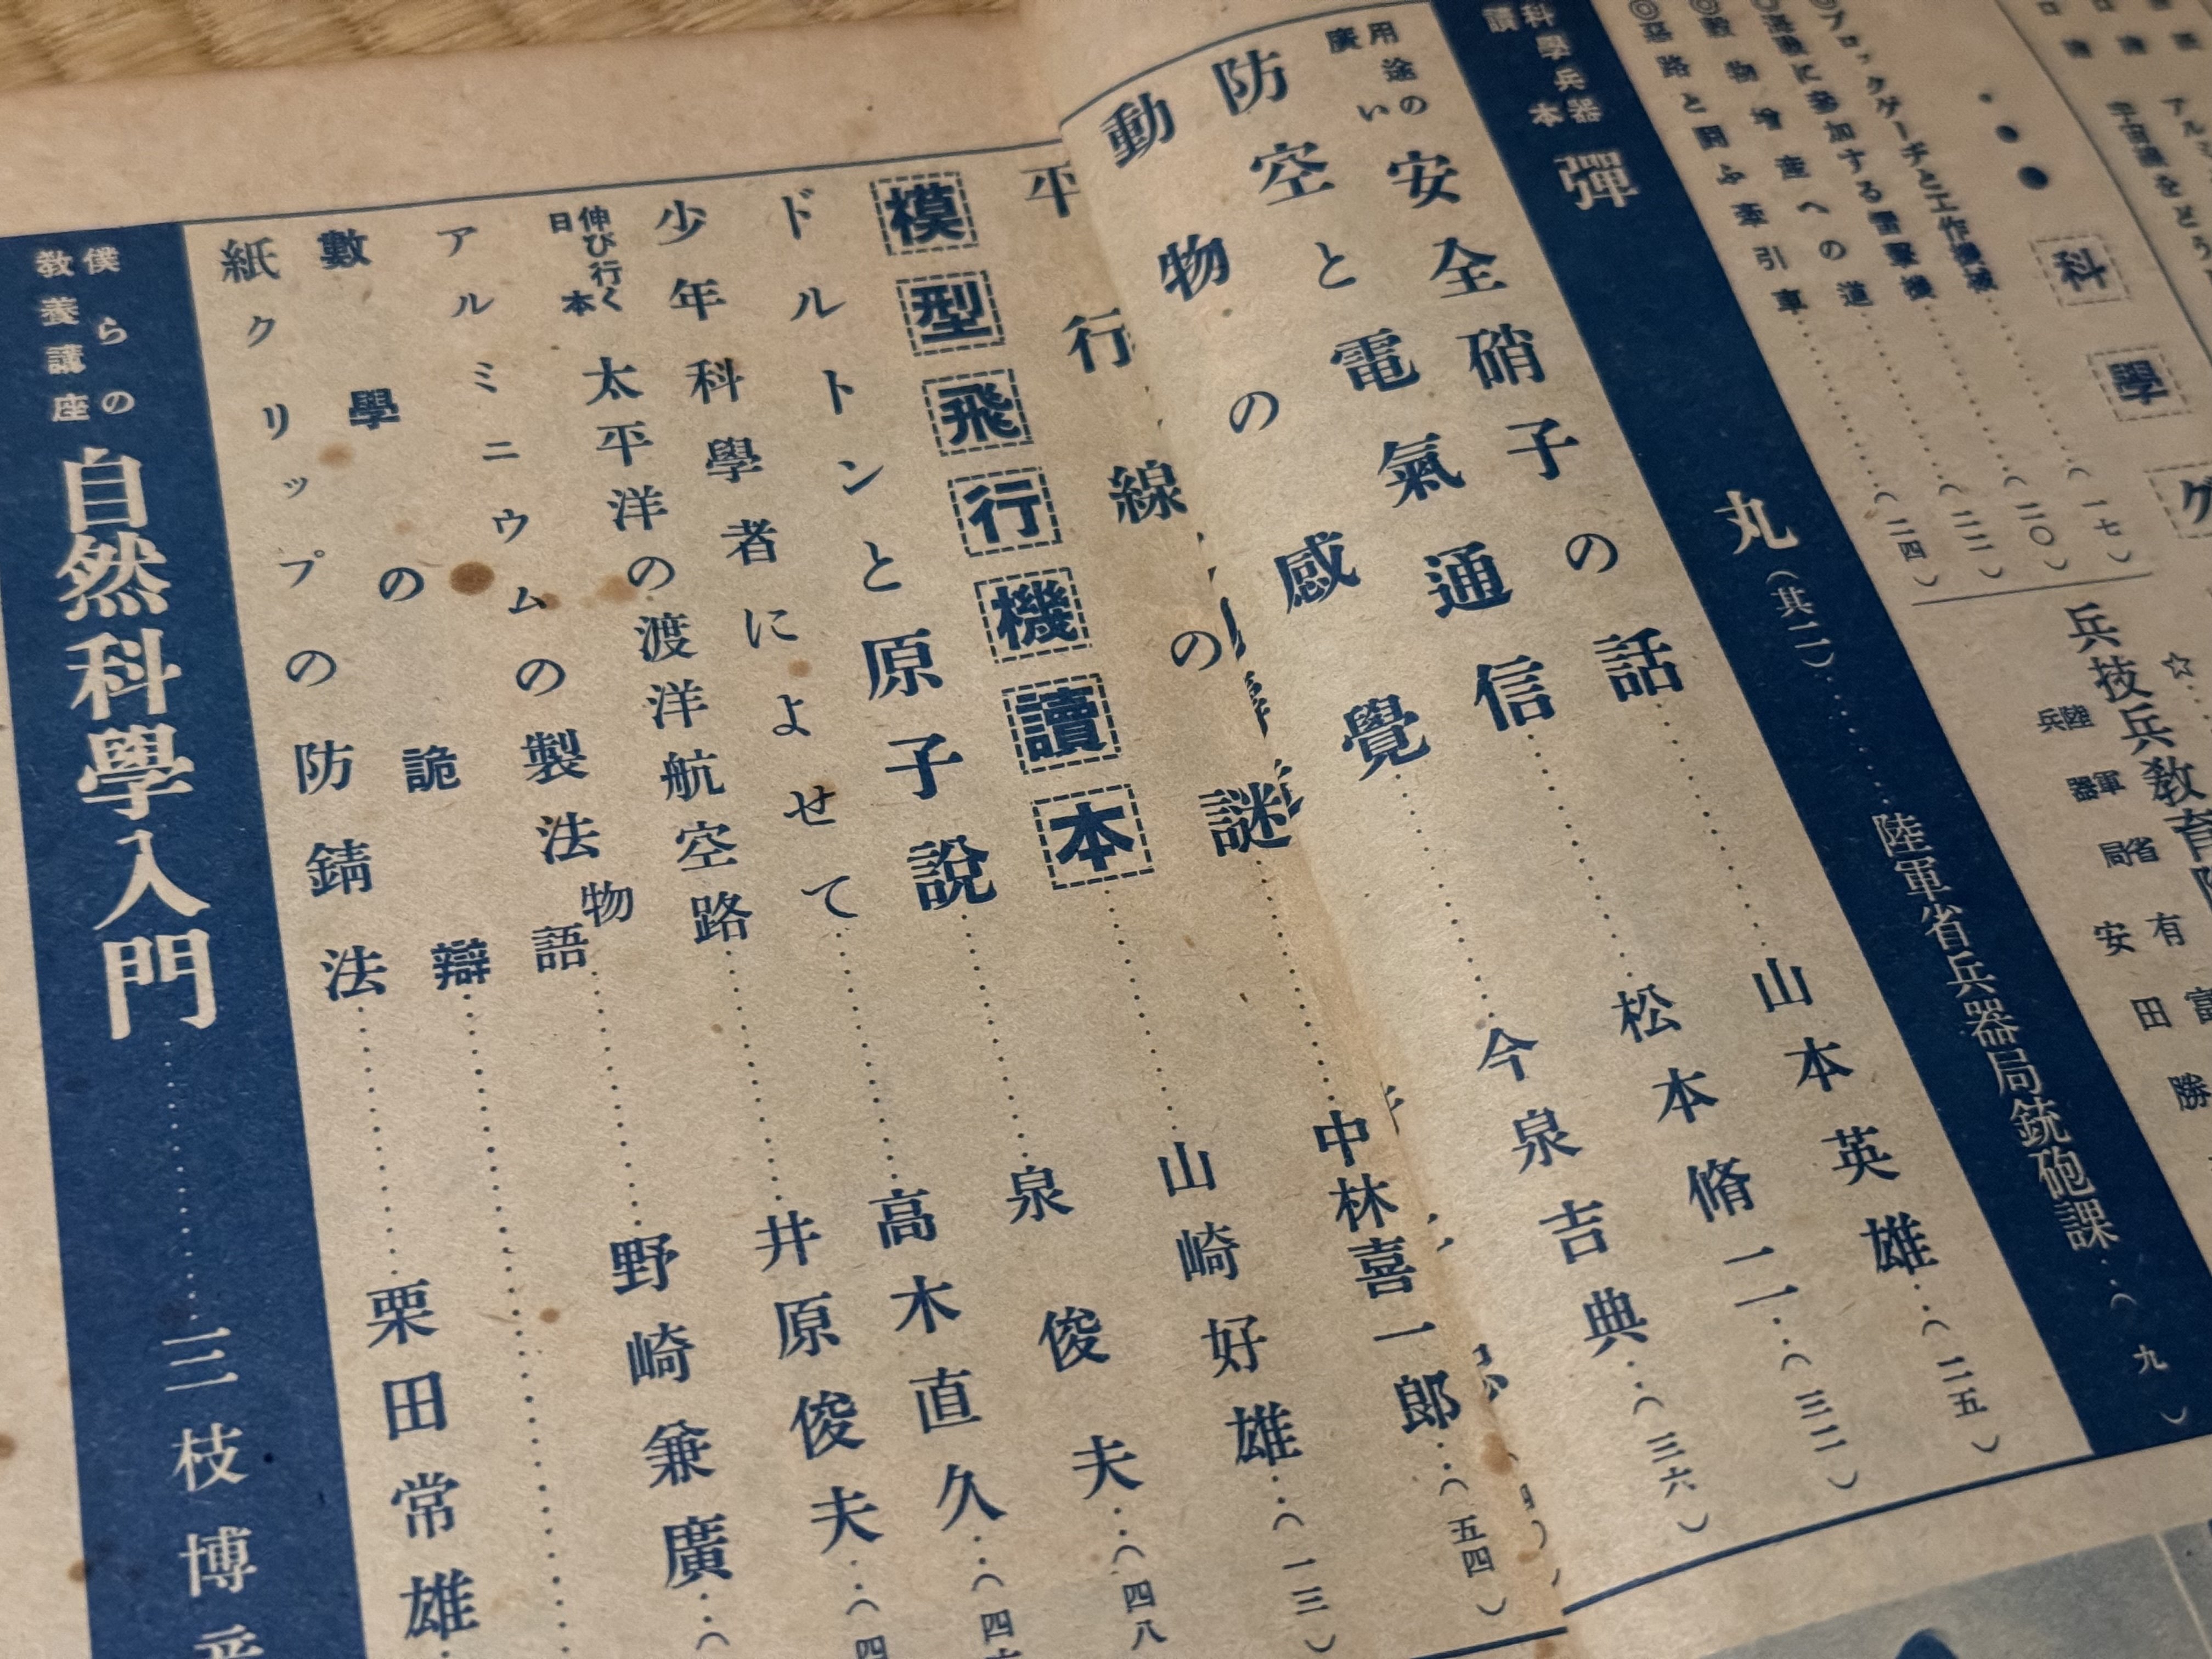 科學
グ
◎ブロックゲーヂと工作機械……(二〇)
に參加する雷擊機……(二二)
穀物增産への道……(二四)
◎惡路と鬪ふ牽引車
兵技兵教育
陸軍省
兵器局
有富
安田勝
科學兵器讀本 彈丸(其二)……陸軍省兵器局銃砲課…(九)
用途の廣い 安全硝子の話……山本英雄…(二五)
防空と電氣通信……松本脩二…(三二)
動物の感覺……今泉吉典…(三六)
平行線の謎……中林喜一郎…(五四)
模型飛行機讀本……山崎好雄…(一三)
ドルトンと原子說……泉俊夫…(四八
少年科學者によせて……高木直久…(四
伸び行く日本 太平洋の渡洋航空路……井原俊夫…(四
アルミニウムの製法物語……野崎兼廣…(
數學の詭辯……
紙クリップの防錆法……栗田常雄
僕らの教養講座 自然科學入門……三枝博